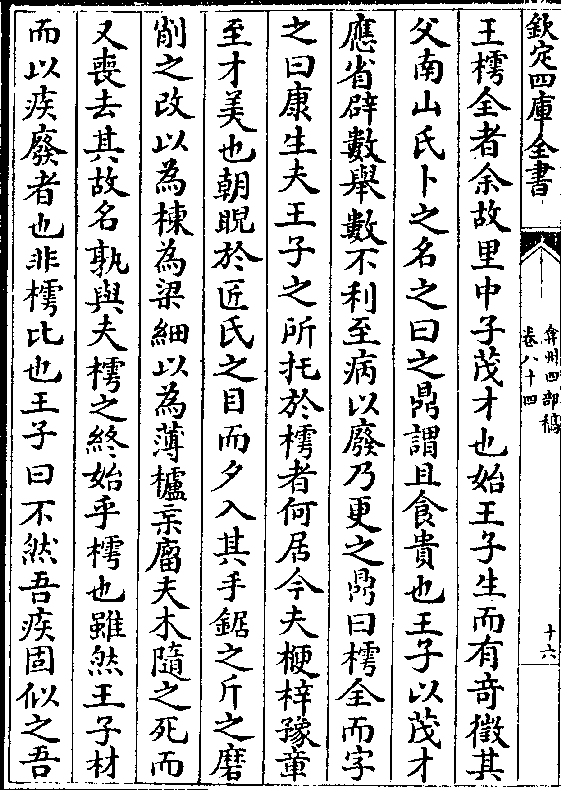 欽定四庫全書
弇州四部稿
卷八十四
十六
王樗全者余故里中子茂才也始王子生而有竒徵其
父南山氏卜之名之曰之鼎謂且食貴也王子以茂才
應省辟數舉數不利至病以廢乃更之鼎曰樗全而字
之曰康生夫王子之所托於樗者何居今夫楩梓豫章
至才美也朝睨於匠氏之目而夕入其手鋸之斤之磨
削之改以為棟為梁細以為薄櫨宗廇夫木隨之死而
又喪去其故名孰與夫樗之終始乎樗也雖然王子材
而以疾廢者也非樗比也王子曰不然吾疾固似之吾